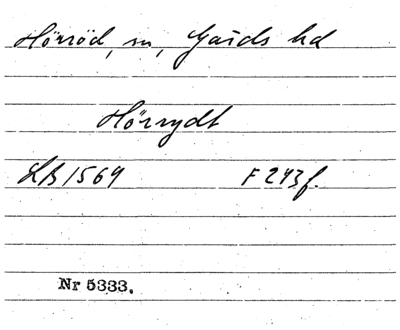 Hörröd, sn, Gärds hd
Hörrydt
LB 1569 F 243 f.
Nr 5333.